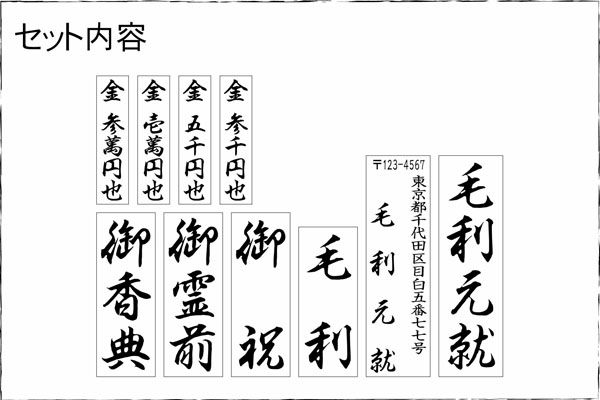 セット内容
金 参萬円也
金 壱萬円也
金 五千円也
金 参千円也
御香典
御霊前
御祝
毛利
〒123-4567
東京都千代田区目白五番七七号
毛利元就
毛利元就